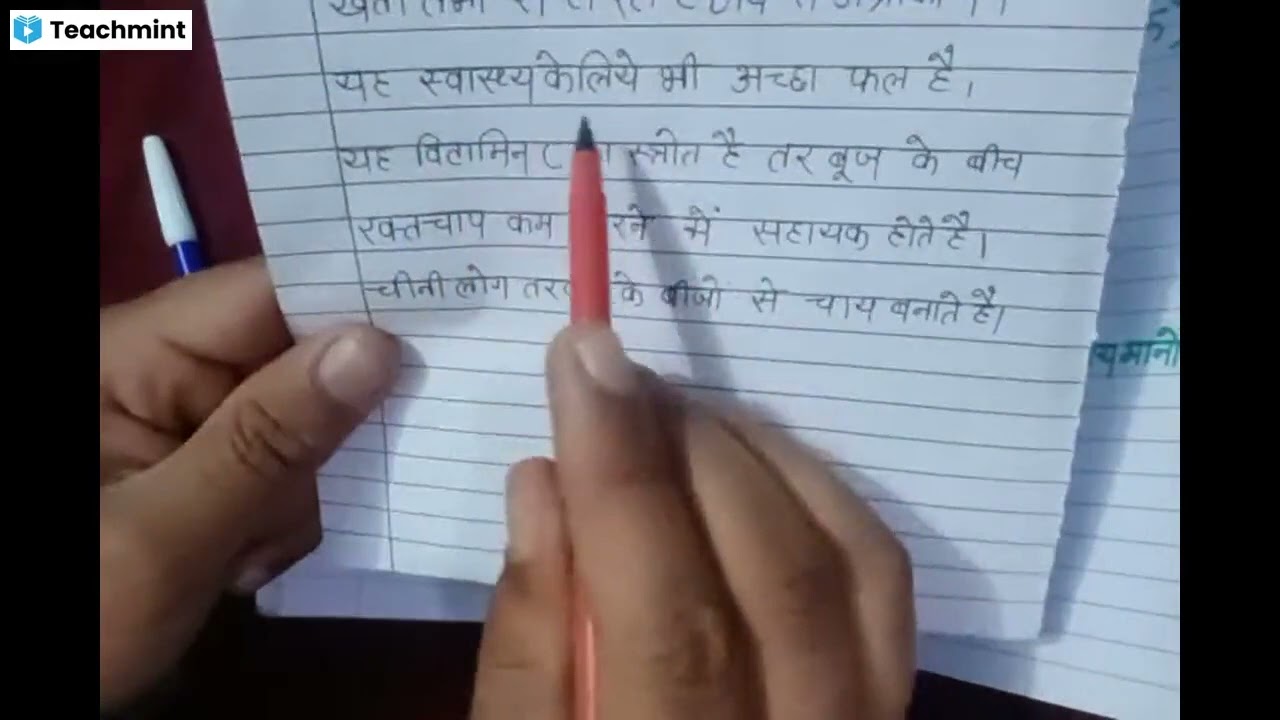 Teachmint
यह स्वास्थ्य के लिये भी अच्छा फल है।
यह विटामिन C स्त्रोत है तरबूज के बीच
रक्तचाप कम रने में सहायक होते है।
चीनी लोग तर के बीजो से चाय बनाते है।
यमानो